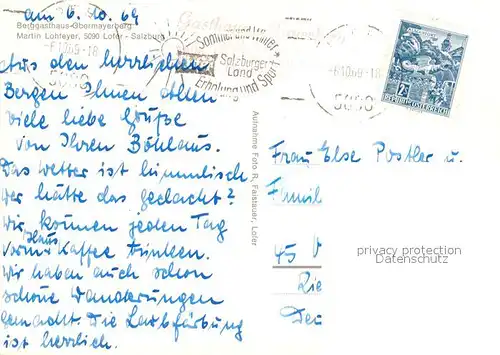 am 6.10.69
Berggasthaus-Obermayerberg
Martin Lohfeyer, 5090 Lofer - Salzburg
-6.10.69-18
5090
Sommer und Winter
Salzburger
Land
Erholung und Sport
-6.10.69-18
5090
2S
REPUBLIK ÖSTERREICH
Aus den herrlichen
Bergen Ihnen allen
viele liebe Grüße
von Ihren Böhlaus.
Das Wetter ist himmlisch
Wer hätte das gedacht?
Wir können jeden Tag
vorm Haus Kaffee trinken.
Wir haben auch schon
schöne Wanderungen
gemacht. Die Laubfärbung
ist herrlich.
Aufnahme Foto R. Faistauer, Lofer
Frau Else Postler u.
Famil
45
privacy protection
Datenschutz